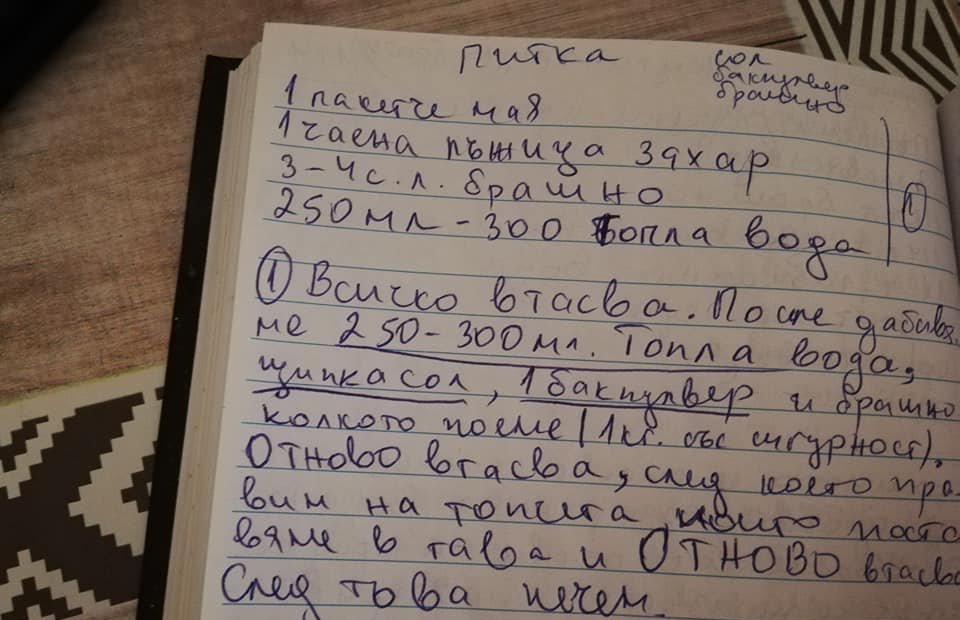 питка
сол
бакпулвер
брашно
1 пакетче мая
1 чаена лъжица захар
3-4 с.л. брашно
250 мл - 300 топла вода
1
1 Всичко втасва. После дабавя
ме 250-300 мл. Топла вода,
щипка сол, 1 бакпулвер и брашно
колкото поеме (1кг. със сигурност).
Отново втасва, след което пра-
вим на топчета, които поста
вяме в тава и ОТНОВО втасва
След това печем.